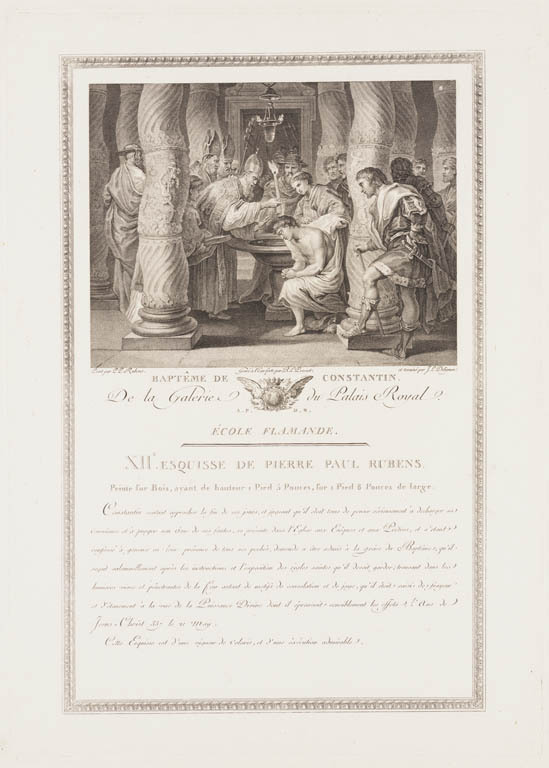 Peint par P. P. Rubens. Gravé à l'Eau forte par et terminé par
BAPTÊME DE CONSTANTIN.
De la Galerie du Palais Royal.
A. P. D. R.
ÉCOLE FLAMANDE.
XIIe. ESQUISSE DE PIERRE PAUL RUBENS.
Peinte sur Bois, ayant de hauteur 1 Pied 5 Pouces, sur 1 Pied 8 Pouces de large.
Constantin sentant approcher la fin de ses jours, et jugeant qu'il étoit tems de penser sérieusement à décharger sa
conscience et à purger son âme de ses fautes, se présente dans l'Eglise aux Evêques et aux Prêtres, et s'étant
confessé à genoux en leur présence de tous ses péchés, demande à être admis à la grâce du Baptême, qu'il
reçut solemnellement après les instructions et l'exposition des règles saintes qu'il devoit garder, trouvant dans les
lumières vives et pénétrantes de la Foy autant de motifs de consolation et de joie, qu'il étoit saisi de frayeur
et d'étonnement à la vue de la Puissance Divine dont il éprouvoit sensiblement les effets. L'An de
Jesus Christ 337 le 21 May.
Cette Esquisse est d'une vigueur de Coloris, et d'une exécution admirable.